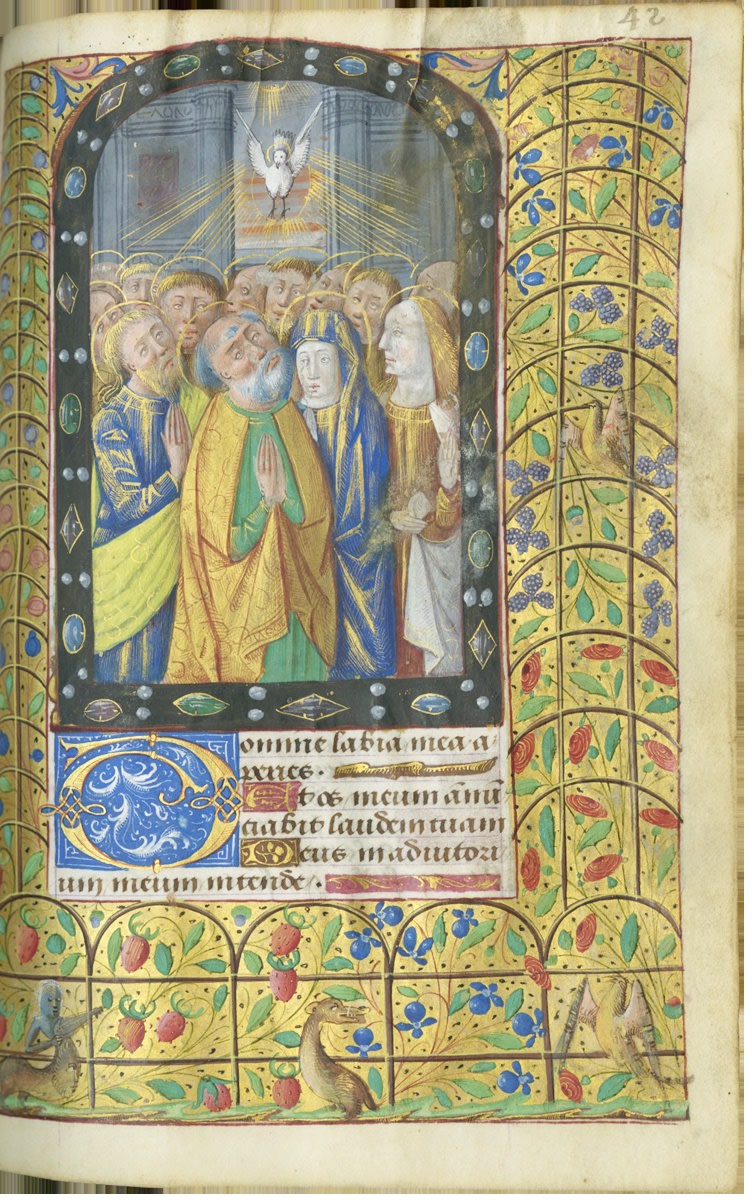 42
Domine labia mea a-
peries.
Et os meum ānū
ciabit laudem tuam
Deus in adiutori
um meum intende.